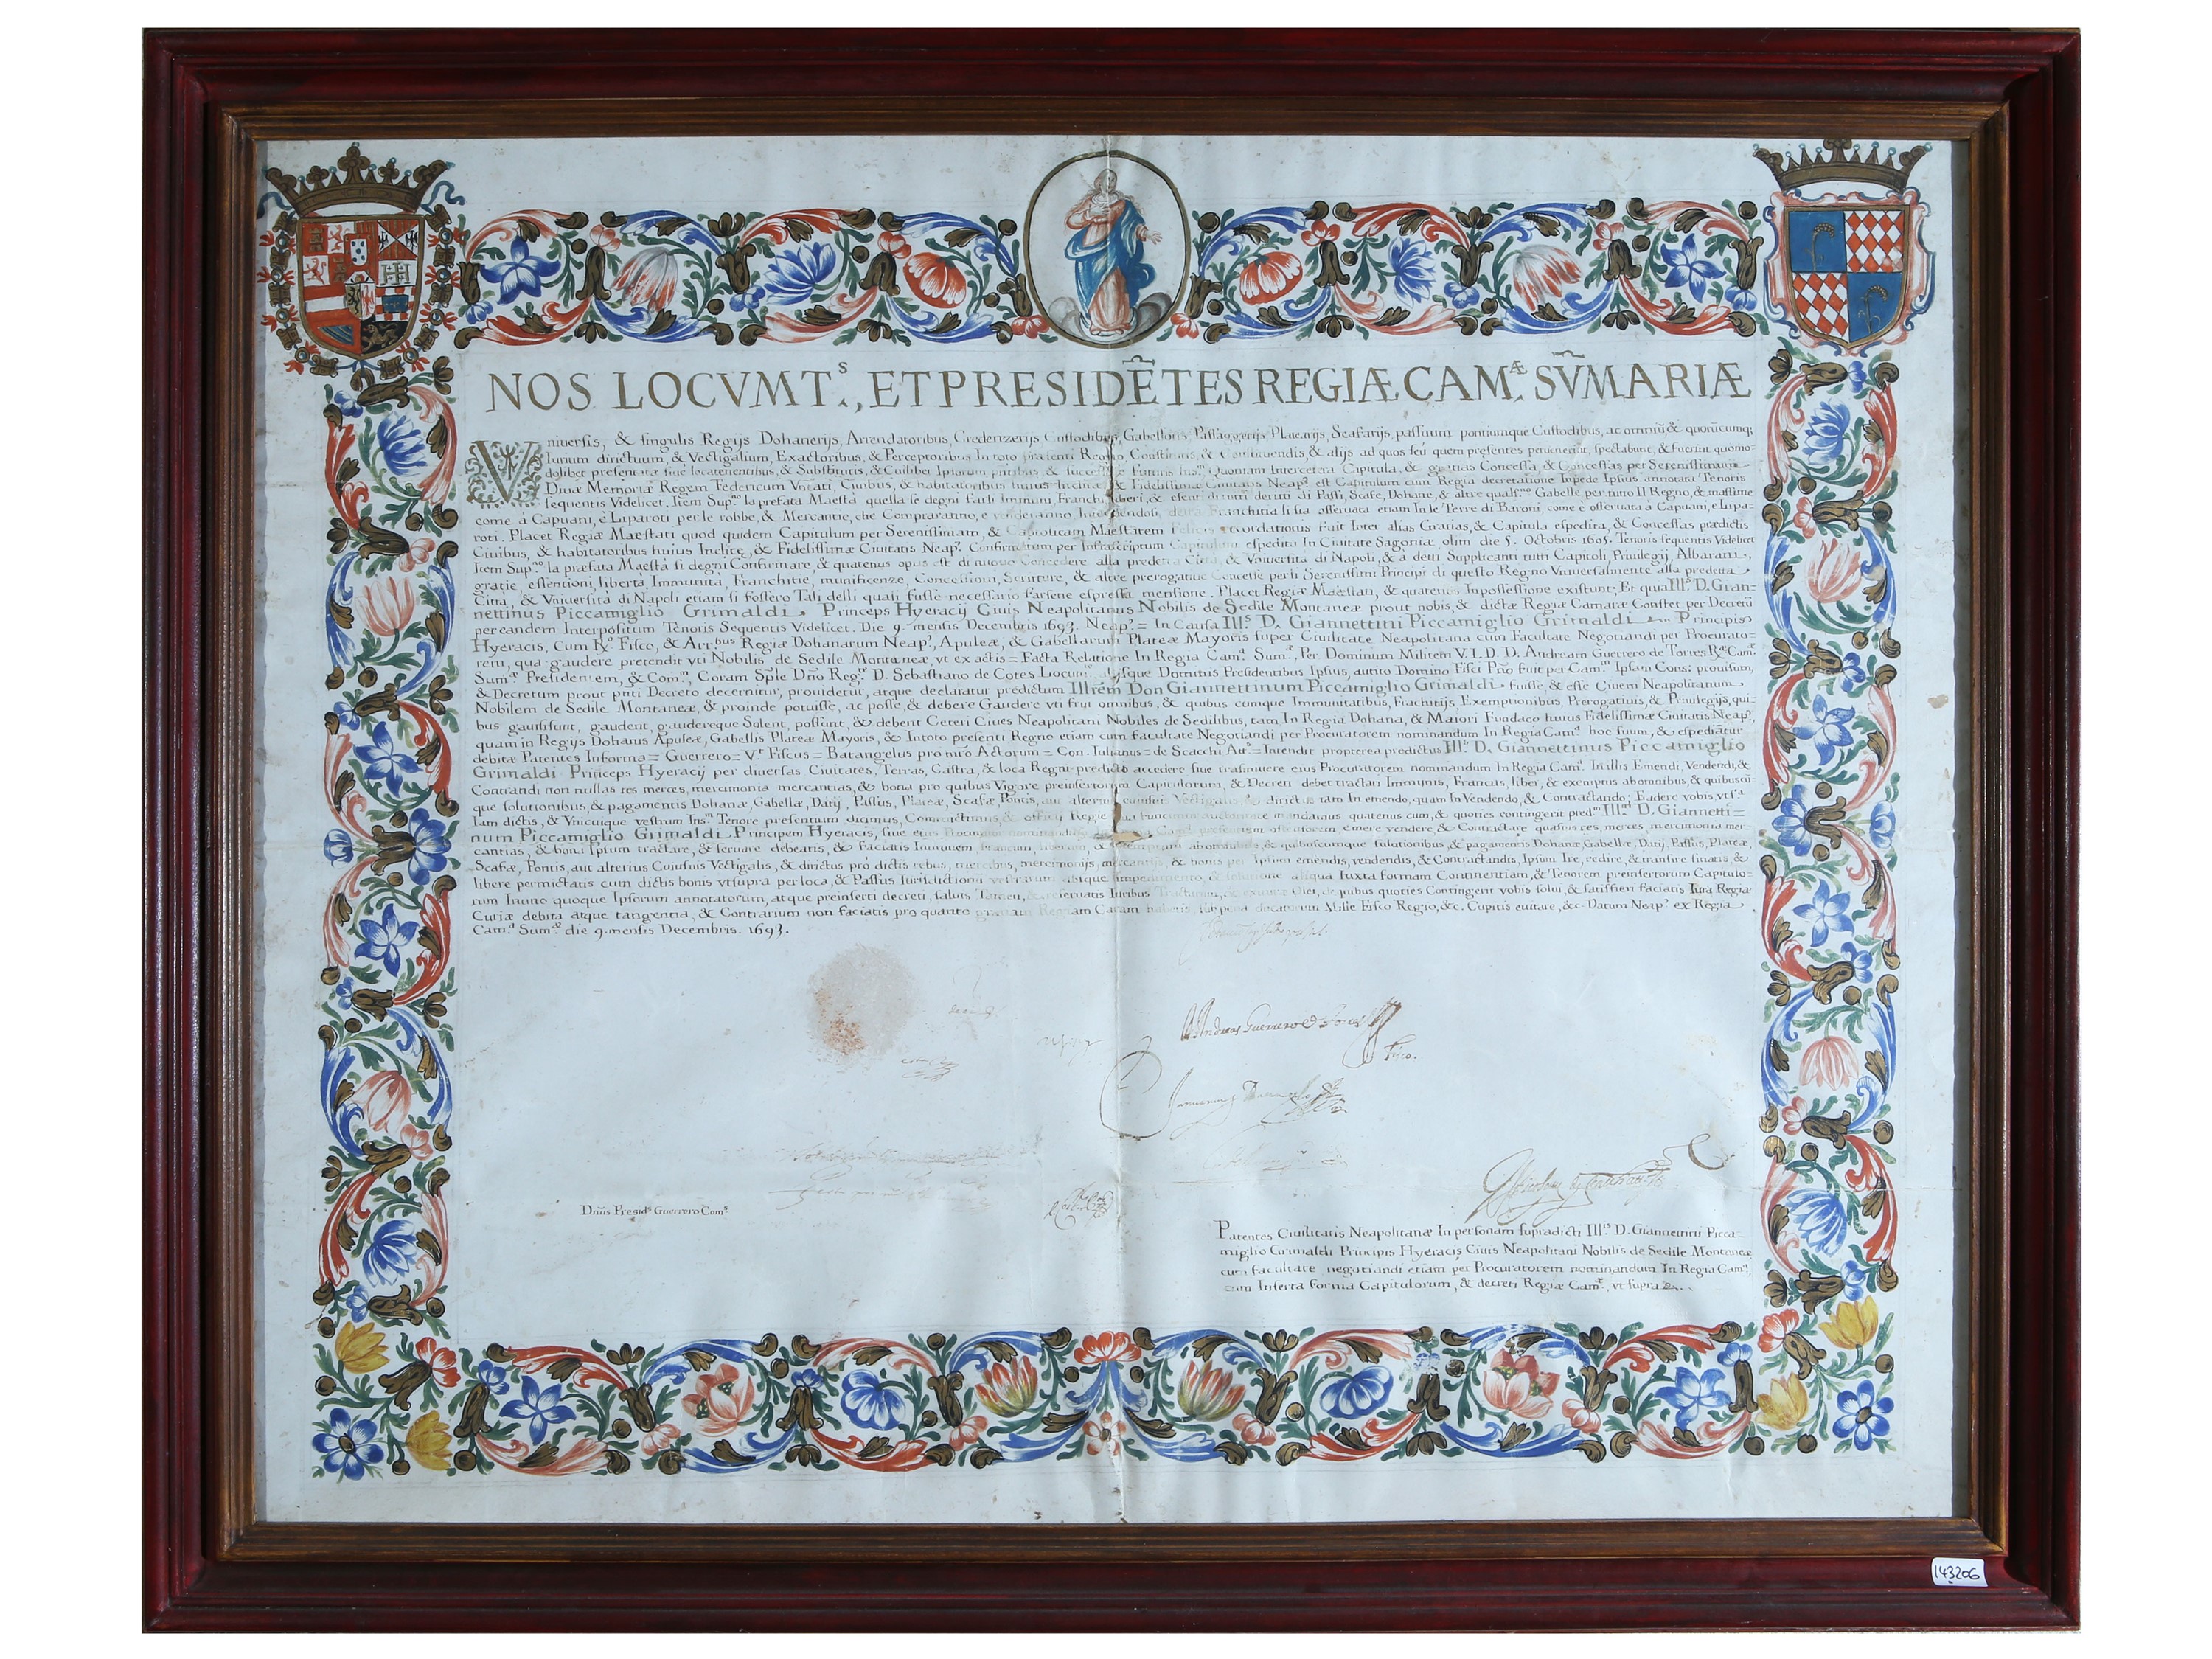 NOS LOCVMT.ˢ, ET PRESIDẼTES REGIÆ CAM.Æ SṼMARIÆ
Vniuersis, & singulis Regijs Dohanerijs, Arrendatoribus, Credenzerijs, Custodibus, Gabellotis, Passaggerijs, Plazarijs, Scafarijs, passuum pontiumque Custodibus, ac omniũ, & quorũcumq;
Iurium dirictuum, & Vectigalium, Exactoribus, & Perceptoribus In toto presenti Regno, Constitutis, & Constituendis, & alijs ad quos seú quem presentes peruenerint, spectabunt, & fuerint quomo-
dolibet presentatæ siue locatenentibus, & Substitutis, & Cuilibet Ipsorum, Quoniam Intercetera Capitula, & gratias Concessa, & Concessas per Serenissimum
Diuæ Memoriæ Regem Federicum Vniuersitati, Ciuibus, & habitatoribus huius Inclitæ, & Fidelissimæ Ciuitatis Neap.ˢ est Capitulum cum Regia decretatione Inpede Ipsius annotata Tenoris
sequentis Videlicet. Item Sup.ⁿᵒ la prefata Maestà quella se degni farli Immuni Franchi, liberi, & esenti di tutti deritti di Passi, Scafe, Dohane, & altre quals.ⁿᵒ Gabelle per tutto Il Regno, & maxime
come à Capuani, è Liparoti per le robbe, & Mercantie, che Compraranno, e venderanno detta Franchitia li sia osseruata etiam In le Terre di Baroni, come è osseruata à Capuani, e Lipa-
roti. Placet Regiæ Maestati quod quidem Capitulum per Serenissimam, & Catholicam Maestatem recordationis fuit Inter alias Gratias, & Capitula espedita, & Concessas prædictis
Ciuibus, & habitatoribus huius Inclitæ, & Fidelissimæ Ciuitatis Neap.ˢ Confirmatum per Infrascriptum Capitulum espeditu In Ciuitate Sagoniæ olim die 5. Octobris 1605. Tenoris sequentis Videlicet
Item Sup.ⁿᵒ la præfata Maestà si degni Confirmare, & quatenus opus est di nuouo Concedere alla predetta Città, & Vniuersità di Napoli, & à detti Supplicanti tutti Capitoli, Priuilegij, Albarani,
gratie, essentioni, libertà, Immunità, Franchitie, munificenze, Concessioni, Scritture, & altre prerogatiue Concesse per li Serenissimi Principi di questo Regno Vniuersalmente alla predetta
Città, & Vniuersità di Napoli etiam si fossero Tali delli quali fusse necessario farsene espressa mensione. Placet Regiæ Maiestati, & quatenus Inpossessione existunt; Et qua Ill.ˢ D. Gian-
nettinus Piccamiglio Grimaldi Princeps Hyeracij Ciuis Neapolitanus Nobilis de Sedile Montaneæ prout nobis, & dictæ Regiæ Cameræ Constet per Decretũ
per eandem Interpositum Tenoris Sequentis Videlicet. Die 9. mensis Decembris 1693. Neap.ˢ = In Causa Ill.ˢ D. Giannettini Piccamiglio Grimaldi Principis
Hyeracis, Cum R.º Fisco, & Arr.ᵇᵘˢ Regiæ Dohanarum Neap.ˢ, Apuleæ, & Gabellarum Plateæ Mayoris super Ciuilitate Neapolitana cum Facultate Negotiandi per Procurato-
rem, qua gaudere pretendit vti Nobilis de Sedile Montaneæ, vt ex actis = Facta Relatione In Regia Cam.ᵃ Sum.ᵃ, Per Dominum Militem V. I. D. D. Andream Guerrero de Torres R.æ Cam.ᵃ
Sum.ᵃ Presidentem, & Com.ᵐ, Coram Sp̃le Dñō Reg.ᵉ D. Sebastiano de Cotes Locum. alijsque Dominis Presidentibus Ipsius, autito Domino Fisci Pñō fuit per Cam.ᵐ Ipsam Cons: prouisum,
& Decretum prout pñti Decreto decernitur, prouidetur, atque declaratur predictum Illrem Don Giannettinum Piccamiglio Grimaldi fuisse, & esse Ciuem Neapolitanum
Nobilem de Sedile Montaneæ, & proinde potuisse, ac posse, & debere Gaudere vti frui omnibus, & quibus cumque Immunitatibus, Frachitijs, Exemptionibus, Prerogatiuis, & Priuilegijs, qui-
bus gauisi sunt, gaudent, gaudereque Solent, possunt, & debent Ceteri Ciues Neapolitani Nobiles de Sedilibus, tam In Regia Dohana, & Maiori Fundaco huius Fidelissimæ Ciuitatis Neap.ˢ,
quam in Regijs Dohanis Apuleæ, Gabellis Plateæ Mayoris, & Intoto presenti Regno etiam cum facultate Negotiandi per Procuratorem nominandum In Regia Cam.ᵃ hoc suum, & espediãtur
debitæ Patentes Informa = Guerrero = V.ᵗ Fiscus = Batangelus pro mro Actorum = Con. Iulianus = de Scacchi Au.ˢ = Intendit propterea predictus Ill.ˢ D. Giannettinus Piccamiglio
Grimaldi Princeps Hyeracij per diuersas Ciuitates, Terras, Castra, & loca Regni predicti accedere siue trasmittere eius Procuratorem nominandum In Regia Cam.ᵃ In illis Emendi, Vendendi, &
Contrandi non nullas res merces, mercimonia mercantias, & bona pro quibus Vigore preinsertorum Capitulorum, & Decreti debet tractari Immunis, Francus, liber, & exemptus abomnibus, & quibuscũ
que solutionibus, & pagamentis Dohanæ, Gabellæ, Datij, Passus, Plateæ, Scafæ, Pontis, aut alterius cuiusuis Vectigalis, & dirictus tam In emendo, quam In Vendendo, & Contractando; Eadere vobis, vt s.ᵃ
Iam dictis, & Vnicuique vestrum Ins.ᵐ Tenore presentium dicimus, Committimus, & officij Regie mandamus quatenus cum, & quoties contingerit pred.ᵐ Ill.ᵐ D. Giannetti=
num Piccamiglio Grimaldi Principem Hyeracis, siue eius emere vendere & Contractare quasuis res, merces, mercimonia mer
cantias, & bona Ipsum tractare, & seruare debeatis, & faciatis Immunem, & quibuscumque solutionibus, & pagamentis Dohanæ, Gabellæ, Datij, Passus, Plateæ,
Scafæ, Pontis, aut alterius Cuiusuis Vectigalis, & dirictus pro dictis rebus, mercibus, mercimonijs, mercantijs, & bonis per Ipsum emendis, vendendis, & Contractandis, Ipsum Ire, redire, & transire sinatis, &
libere permictatis cum dictis bonis vt supra per loca, & Passus Iurisdictioni vestrarum absque Impedimento, & solutione aliqua Iuxta formam Continentiam, & Tenorem preinsertorum Capitulo=
rum Inuino quoque Ipsorum annotatorum, atque preinserti decreti, saluis Tamen, & reseruatis Iuribus Olei, de quibus quoties Contingerit vobis solui, & satisfieri faciatis Iura Regiæ
Curiæ debita atque tangentia, & Contrarium non faciatis pro quanto gratiam Regiam Caram ducatorum Mille Fisco Regio, &c. Cupitis euitare, &c. Datum Neap.ˢ ex Regia
Cam.ᵃ Sum.ᵃ die 9. mensis Decembris. 1693.
Andreas Guerrero de Torres
Fisco.
Dñus Presid.ˢ Guerrero Com.ˢ
Patentes Ciuilitatis Neapolitanæ In personam supradicti Ill.ⁱˢ D. Giannettini Picca
miglio Grimaldi Principis Hyeracis Ciuis Neapolitani Nobilis de Sedile Montaneæ
cum facultate negotiandi etiam per Procuratorem nominandum In Regia Cam.ᵃ,
cum Inserta forma Capitulorum, & decreti Regiæ Cam.ᵃ, vt supra
143206